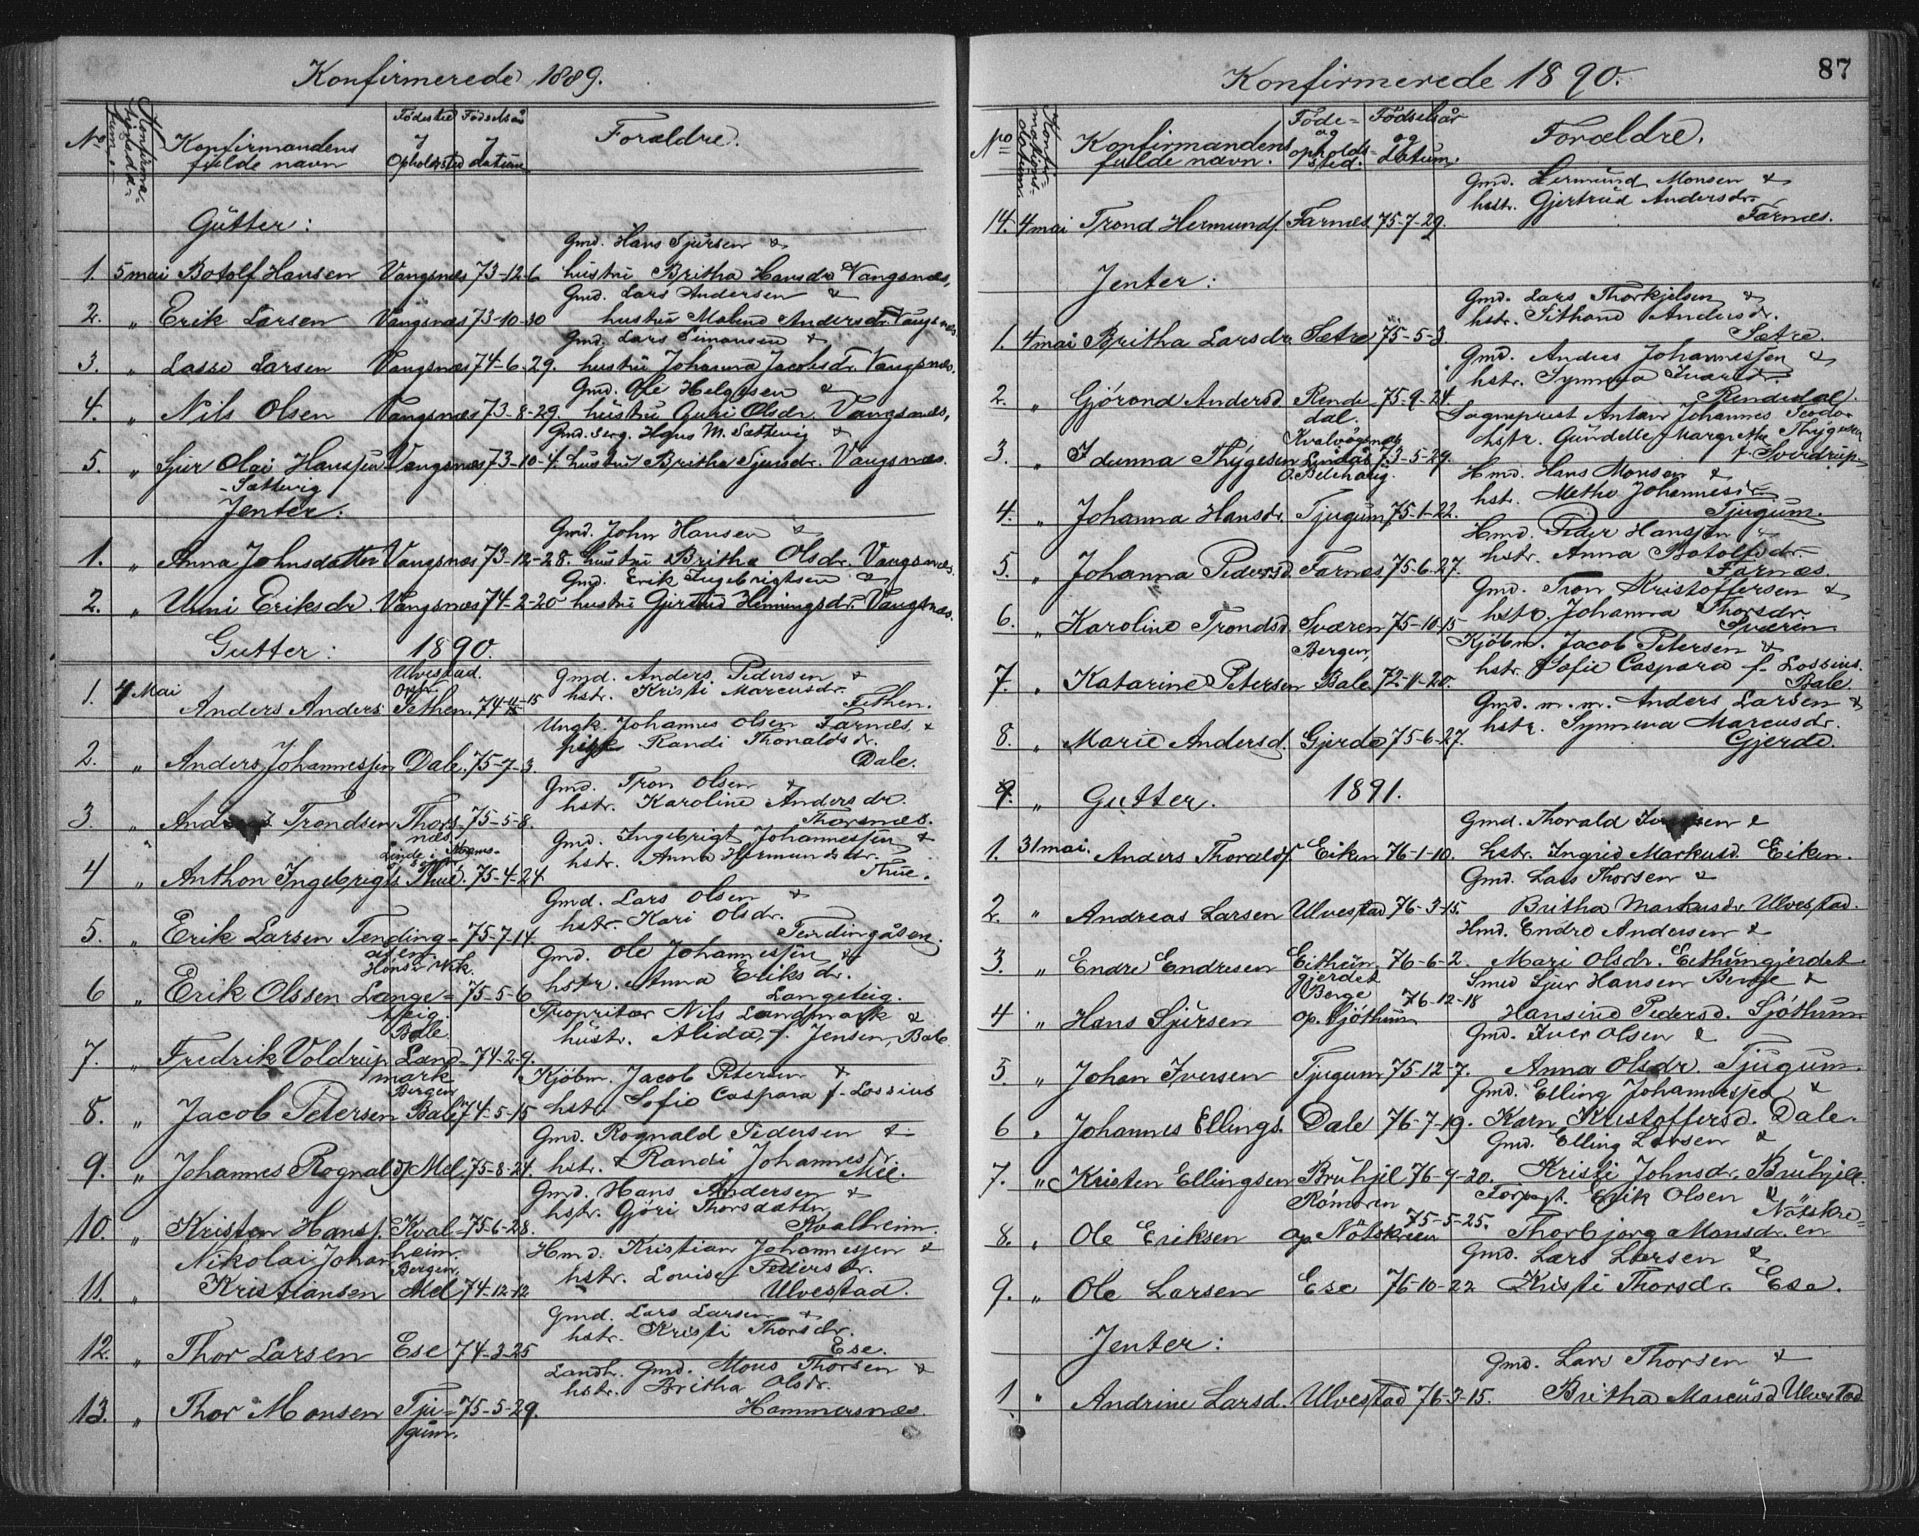 Konfirmerede 1889.
No Konfirmandens fulde navn Fødested og Opholdssted Fødselsår og datum Forældre.
Gutter:
Gmd. Hans Sjursen &
1. 5 mai Botolf Hansen Vangsnæs 73-12-6 hustru Britha Hansdr Vangsnæs,
Gmd. Lars Andersen &
2. „ Erik Larsen Vangsnæs 73-10-30 hustru Malene Andersdr. Vangsnæs
Gmd. Lars Simonsen &
3. „ Lasse Larsen Vangsnæs 74-6-29. hustru Johanna Jacobsdr. Vangsnæs.
Gmd. Ole Helgesen &
4. „ Nils Olsen Vangsnæs 73-8-29. hustru Guri Olsdr. Vangsnæs,
Gmd. serg. Hans M. Sættevig &
5. „ Sjur Olai Hanssen Vangsnæs 73-10-4. hustru Britha Sjursdr. Vangsnæs.
-Sættevig
Jenter:
Gmd. John Hansen &
1. „ Anna Johnsdatter Vangsnæs 73-12-28. hustru Britha Olsdr. Vangsnæs.
Gmd. Erik Ingebrigtsen &
2. „ Unni Eriksdr. Vangsnæs 74-2-20 hustru Gjertrud Henningsdr. Vangsnæs.
Gutter: 1890.
Ulvestad. Gmd. Anders Pedersen &
1. 4 Mai oph. hstr. Kristi Marcusdr.
Anders Anders. Fethen. 74-11-15 Fethen.
Ungk. Johannes Olsen Farnæs, &
pige Randi Thoraldsdr.
2. „ Anders Johannessen Dale. 75-7-3. Dale.
Gmd. Tron Olsen &
hstr. Karoline Andersdr.
3. „ Trondsen Thors- 75-5-8. Thorsnæs.
næs Gmd. Ingebrigt Johannessen &
hstr. Anna Hermundsdr.
4 „ Anthon Ingebrigts. Thue. 75-4-24. Thue.
Gmd. Lars Olsen &
hstr. Kari Olsdr.
5. „ Erik Larsen Tending- 75-7-14. Tendingåsen.
åsen Gmd. Ole Johannessen &
hstr. Anna Eriksdr.
6 „ Erik Olssen Lange- 75-5-6 Langeteig.
teig. Propritær Nils Landmark &
Bale hustr. Alida, f. Jensen, Bale.
7. „ Fredrik Voldrup Land- 74-2-9.
mark Kjøbm. Jacob Petersen &
Bergen hstr. Sofie Caspara f. Lossius
8. „ Jacob Petersen Bale 74-5-15
Gmd. Rognald Pedersen &
9. „ Johannes Rognalds. Mel. 75-8-24. hstr. Randi Johannesdr. Mel.
Gmd. Hans Andersen &
hstr. Gjøri Thorsdatter
10. „ Kristen Hanss. Kval- 75-6-28. Kvalheim.
Nikolai Johan heim. Hmd. Kristian Johannessen &
Bergen. hstr. Lovise Pedersdr.
11. „ Kristiansen Mel 74-12-12 Ulvestad.
Gmd. Lars Larsen &
hstr. Kristi Thorsdr.
12. „ Thor Larsen Ese 74-3-25 Ese.
Landh. Gmd. Mons Thorsen &
hstr. Britha Olsdr.
13. „ Thor Monsen Tju- 75-5-29. Hammersnæs.
gum.
87
Konfirmerede 1890.
No Konfirmations datum Konfirmandens fulde navn. Føde- og opholds- sted. Fødselsår og datum. Forældre.
Gmd. Hermund Monsen &
hstr. Gjertrud Andersdr.
14. 4 mai Trond Hermunds. Farnæs. 75-7-29. Farnæs.
Jenter:
Gmd. Lars Thorkjelsen &
hstr. Andersdr.
1. 4 mai Britha Larsdr Sætre 75-5-3. Sætre.
Gmd. Andres Johannessen &
hstr. Synneva Ivarsdr.
2. „ Gjørond Andersd. Rende- 75-9-24. Rendedal.
dal. Sogneprest Anton Johannes Teodor
Kvalvågsnæs hstr. Gundelle Margrethe Thygesen
3. „ Idunna Thygesen Lindås 73-5-29. f. Sverdrup.
Hmd. Hans Monsen &
hstr. Methe Johannesdr.
4. „ Johanna Hansdr. Tjugum, 75-1-22. Tjugum.
Hmd. Peder Hanssen &
hstr. Anna Botolfsdr.
5. „ Johanna Pedersd. Farnæs. 75-6-27. Farnæs.
Gmd. Tron Kristoffersen &
hstr. Johanna Thorsdr.
6. „ Karoline Trondsd. Sværen 75-10-15 Sværen
Bergen, Kjøbm. Jacob Petersen &
hstr. Sofie Caspara f. Lossius.
7. „ Katarine Petersen Bale. 72-11-20. Bale.
Gmd. m. m. Anders Larsen &
hstr. Synneva Marcusdr.
8. „ Marie Andersd. Gjerde 75-6-27. Gjerde.
9. „ Gutter. 1891.
Gmd. Thorald &
1. 31 mai. Anders Thoralds. Eiken 76-1-10. hstr. Ingrid Markusd. Eiken.
Gmd. Lars Thorsen &
2. „ Andreas Larsen Ulvestad 76-3-15. Britha Markusdr. Ulvestad.
Hmd. Endre Andersen &
3. „ Endre Endresen Eithun- 76-6-2. Mari Olsdr. Eithungjerdet.
gjerdet Smed Sjur Hansen Berge &
Berge 76-12-18
4 „ Hans Sjursen op. Sjøthun Hansine Pedersd. Sjøthun
Gmd. Iver Olsen &
5. „ Johan Iversen Tjugum 75-12-7. Anna Olsdr. Tjugum.
Gmd. Elling Johannessen &
6 „ Johannes Ellings. Dale 76-7-19. Karn Kristoffersd. Dale.
Gmd. Elling Larsen &
7. „ Kristen Ellingsen Bruhjel 76-9-20. Kristi Johnsdr. Bruhjell.
Rømoren Forpagt. Erik Olsen &
75-5-25. Nøtskre-
8. „ Ole Eriksen op. Nøtskreen Thorbjørg Monsdr. en
Gmd. Lars Larsen &
9. „ Ole Larsen Ese 76-10-22 Kristi Thorsdr. Ese.
Jenter:
Gmd. Lars Thorsen &
1 „ Andrine Larsd. Ulvestad 76-3-15. Britha Marcusd Ulvestad